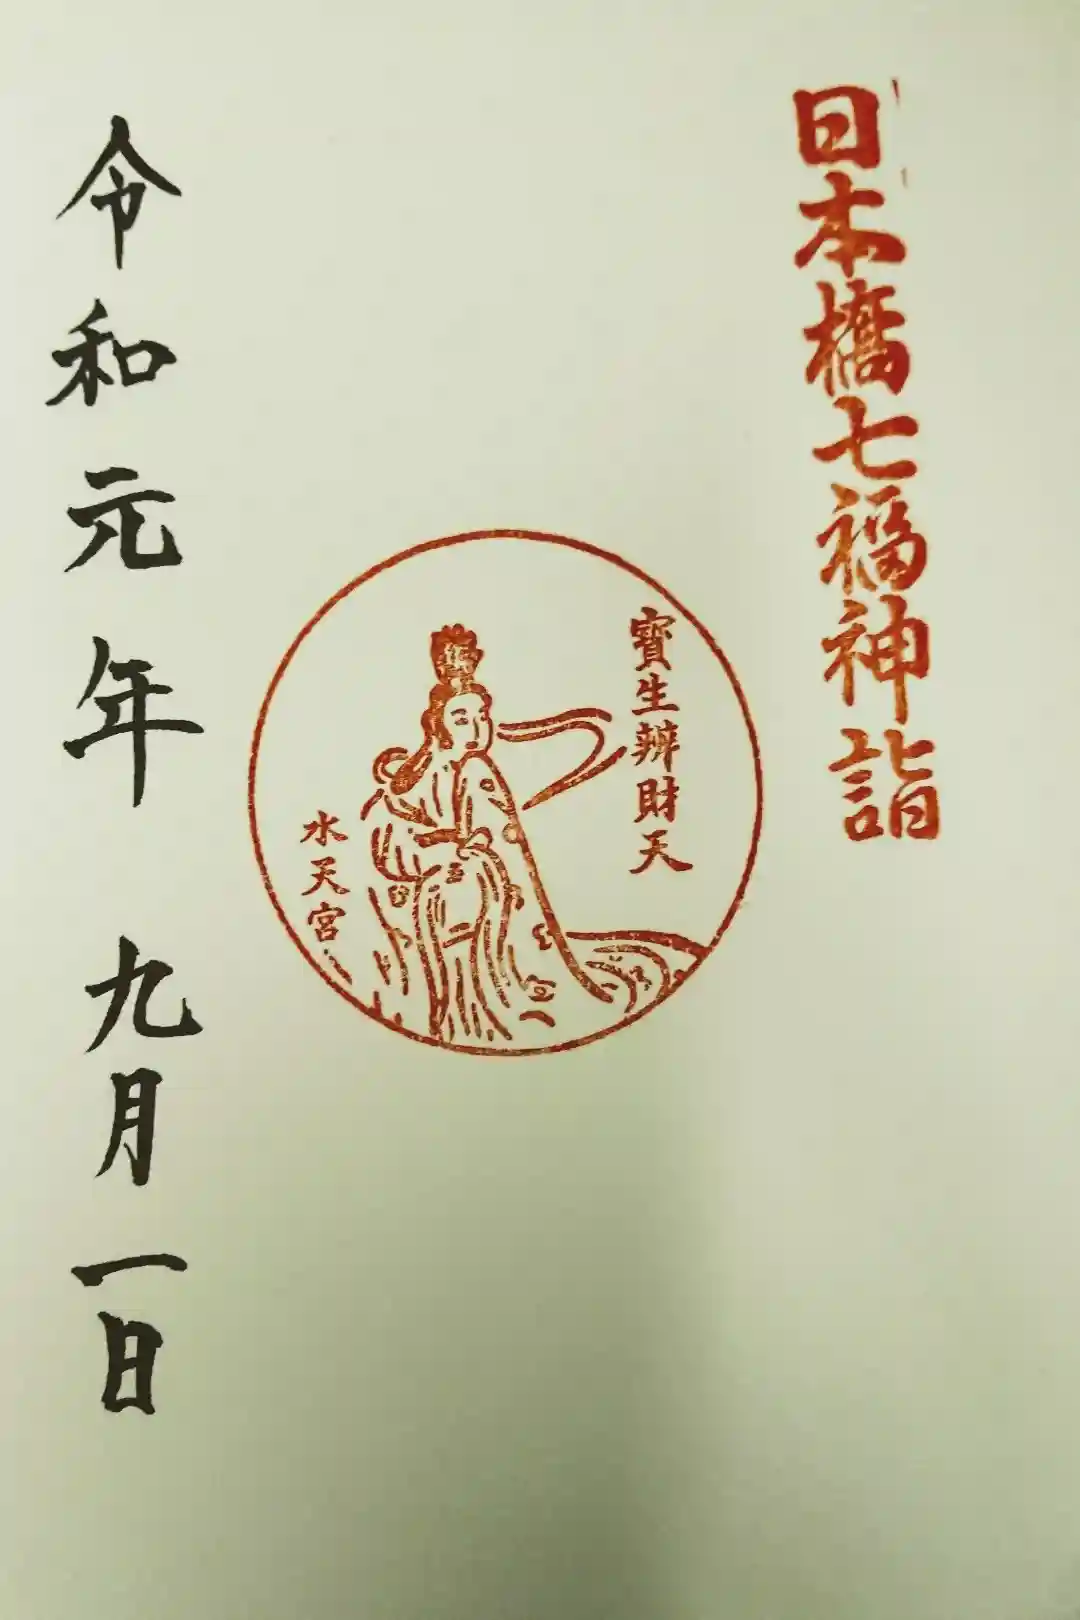 日本橋七福神詣
寶生辨財天
水天宮
令和元年 九月一日